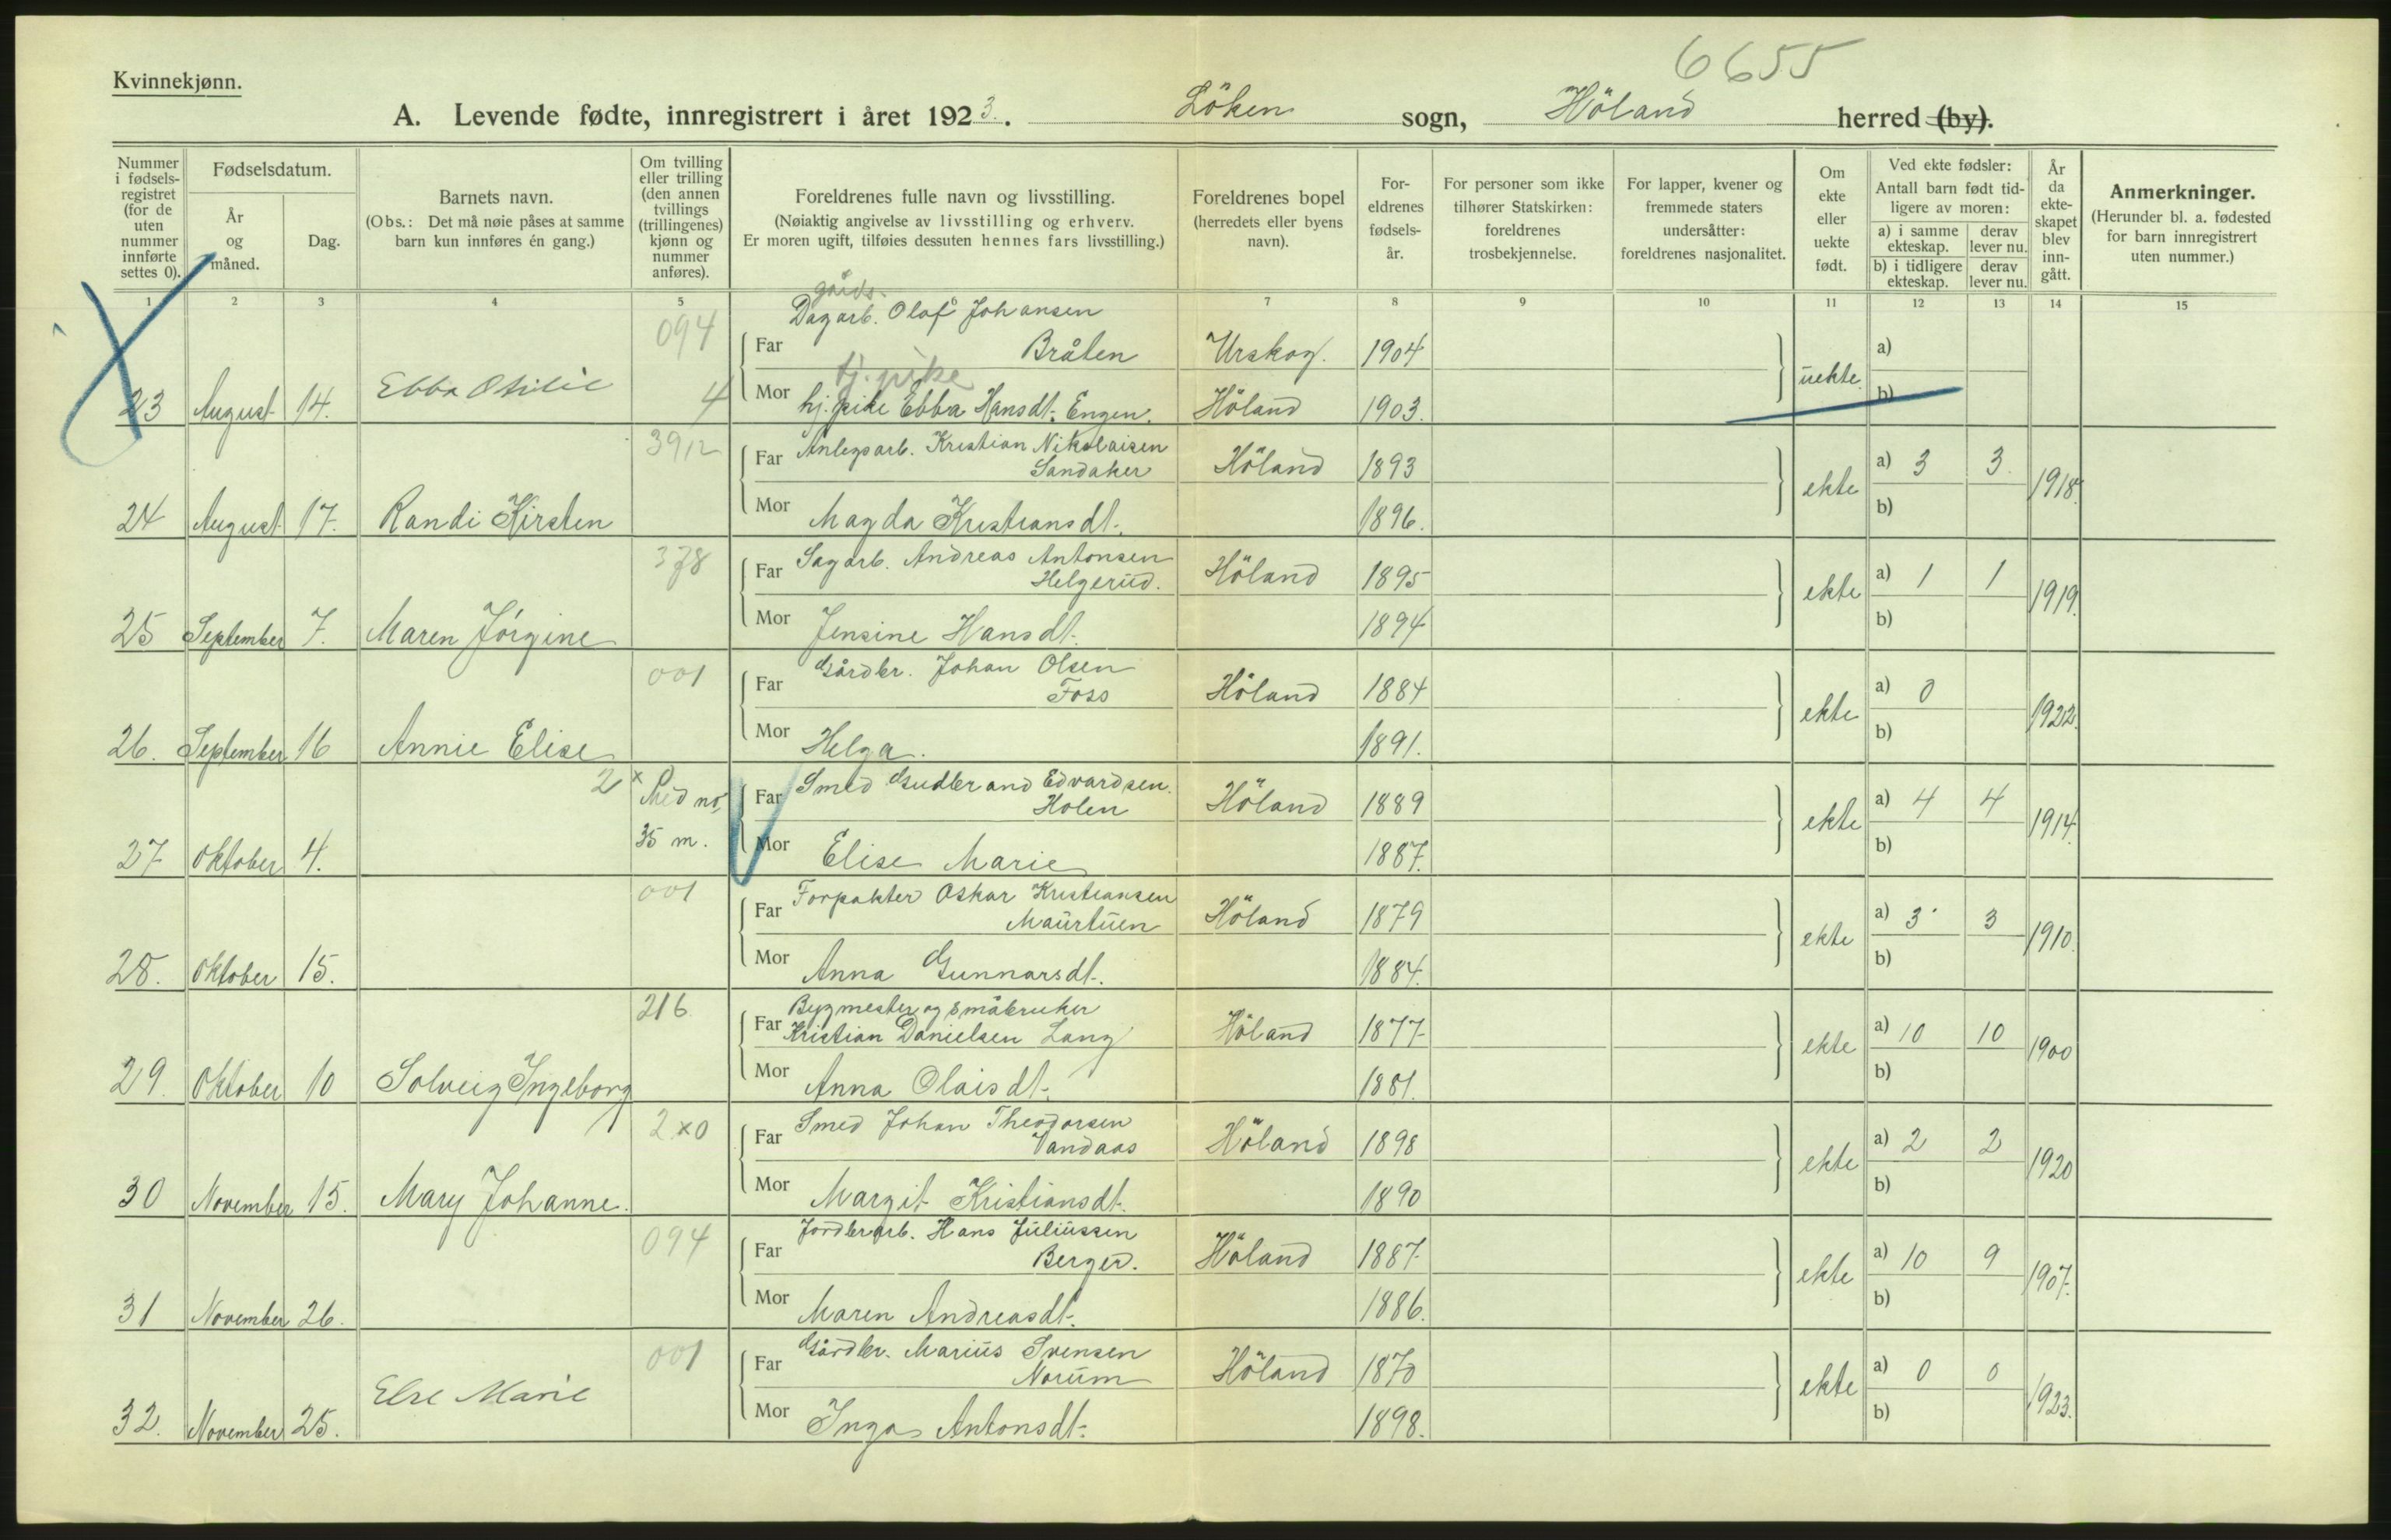 6655
Kvinnekjønn.
A. Levende fødte, innregistrert i året 1923. Löken sogn, Höland herred (by).
Nummer i fødsels-registret (for de uten nummer innførte settes 0).
Fødselsdatum.
År og måned.
Dag.
Barnets navn.
(Obs.: Det må nøie påses at samme barn kun innføres én gang.)
Om tvilling eller trilling (den annen tvillings (trillingenes) kjønn og nummer anføres).
Foreldrenes fulle navn og livsstilling.
(Nøiaktig angivelse av livsstilling og erhverv.
Er moren ugift, tilføies dessuten hennes fars livsstilling.)
Foreldrenes bopel (herredets eller byens navn).
For-eldrenes fødsels-år.
For personer som ikke tilhører Statskirken: foreldrenes trosbekjennelse.
For lapper, kvener og fremmede staters undersåtter: foreldrenes nasjonalitet.
Om ekte eller uekte født.
Ved ekte fødsler:
Antall barn født tid-ligere av moren:
a) i samme ekteskap.
derav lever nu.
b) i tidligere ekteskap.
derav lever nu.
År da ekte-skapet blev inn-gått.
Anmerkninger.
(Herunder bl. a. fødested for barn innregistrert uten nummer.)
1 2 3 4 5 7 8 9 10 11 12 13 14 15
gårds-
094 Dagarb. Olaf Johansen
Far Bråten Urskog. 1904 a)
tj. pike
23 August 14. Ebba Otilie 4 Mor hj. pike Ebba Hansdt. Engen. Höland 1903. uekte. b)
3912 Far Anlegsarb. Kristian Nikolaisen
Sandaker Höland 1893 a) 3 3
24 August 17. Randi Kirsten Mor Magda Kristiansdt. 1896. ekte b) 1918.
378 Far Sagarb. Andreas Antonsen
Helgerud. Höland 1895 a) 1 1
25 September 7. Maren Jörgine Mor Jensine Hansdt. 1894 ekte b) 1919.
001 Far Gårdbr. Johan Olsen
Foss Höland 1884 a) 0
26. September 16 Annie Elise Mor Helga. 1891. ekte b) 1922.
2 x Med no, Far Smed Gudbrand Edvardsen.
Holen Höland 1889 a) 4 4
27 Oktober 4. 35 m. Mor Elise Marie 1887. ekte b) 1914.
001 Far Forpakter Oskar Kristiansen
Maurtuen Höland 1879 a) 3 3
28. Oktober 15. Mor Anna Gunnarsdt. 1884. ekte b) 1910.
216 Bygmester og småbruker
Far Kristian Danielsen Lang Höland 1877 a) 10 10
29. Oktober 10 Solveig Ingeborg Mor Anna Olaisdt. 1881. ekte b) 1900
2x0 Far Smed Johan Theodorsen
Vandaas Höland 1898 a) 2 2
30 November 15. Mary Johanne. Mor Margit Kristiansdt. 1890 ekte b) 1920
094 Far Jordbrarb. Hans Juliussen
Berger. Höland 1887 a) 10 9
31 November 26. Mor Maren Andreasdt. 1886. ekte b) 1907.
001 Far Gårdbr. Marius Svensen
Norum Höland 1870 a) 0 0
32. November 25. Else Marie Mor Inga Antonsdt. 1898. ekte b) 1923.